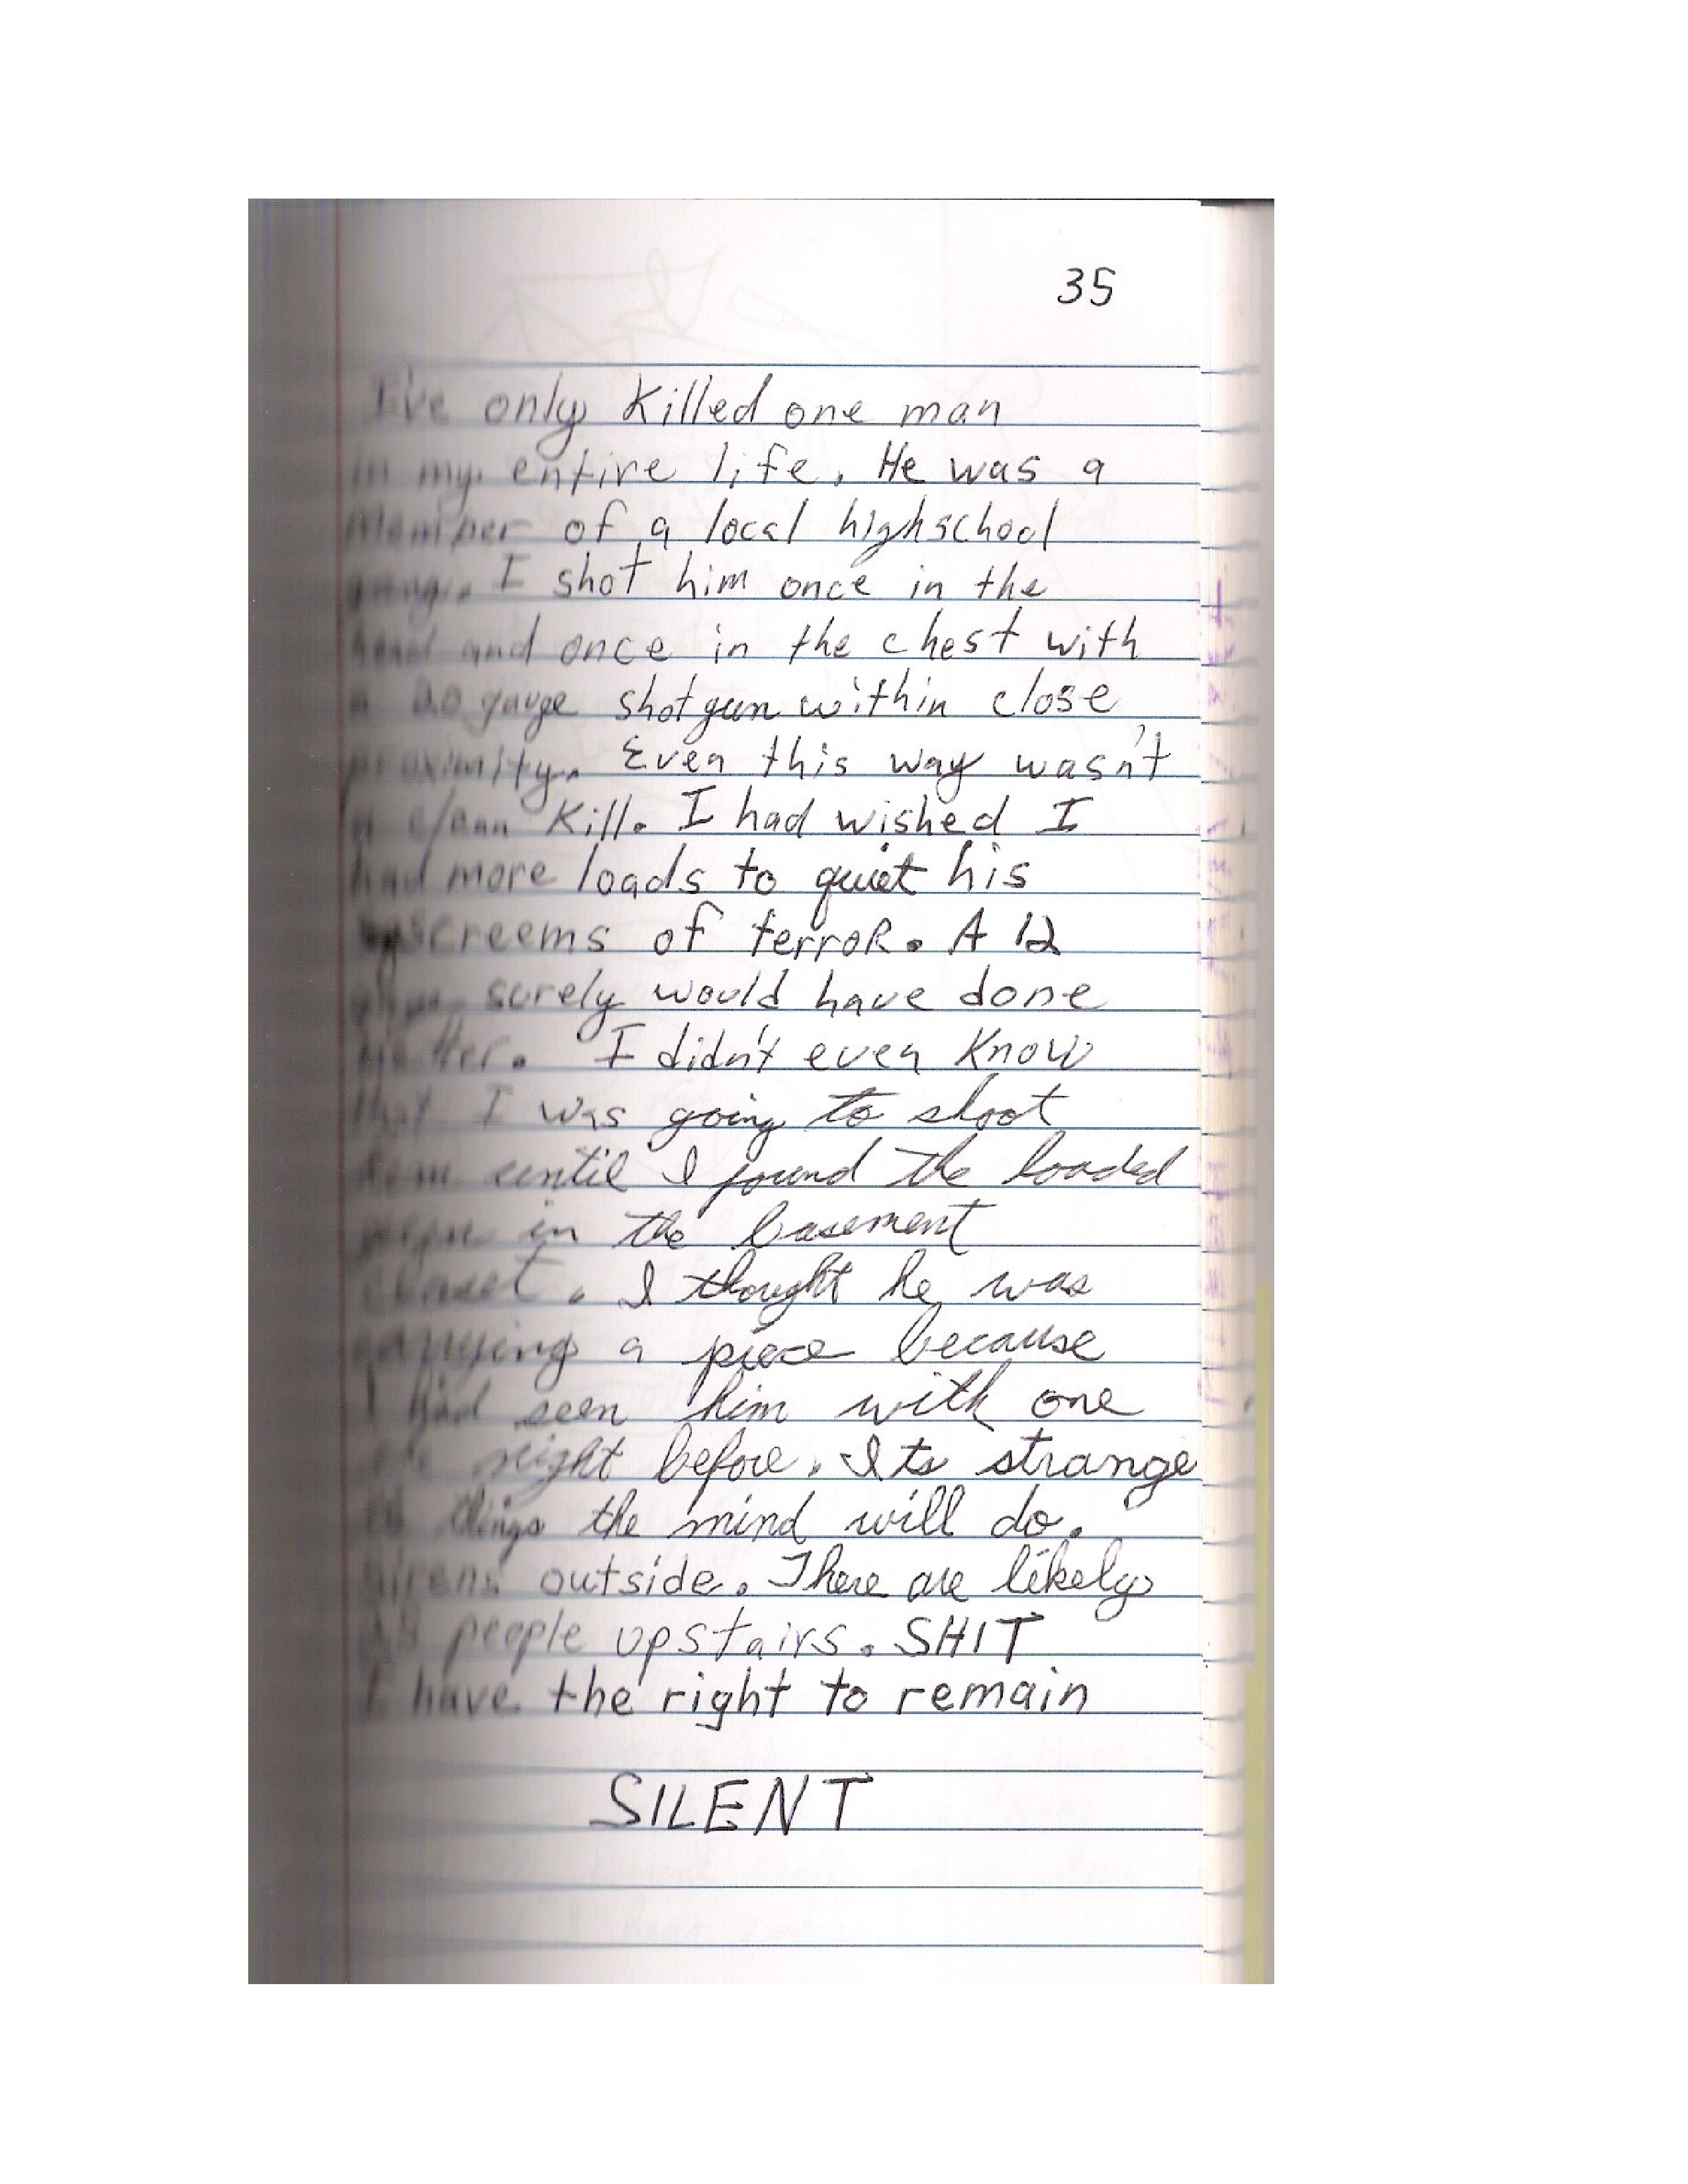 35
I've only killed one man
in my entire life. He was a
member of a local highschool
gang. I shot him once in the
head and once in the chest with
a 20 gauge shotgun within close
proximity. Even this way wasn't
a clean kill. I had wished I
had more loads to quiet his
screems of terroR. A 12
surely would have done
better. I didn't even know
that I was going to shoot
him until I found the loaded
in the basement
closet. I thought he was
carrying a piece because
I had seen him with one
the night before. Its strange
the things the mind will do.
Sirens outside. There are likely
people upstairs. SHIT
I have the right to remain
SILENT